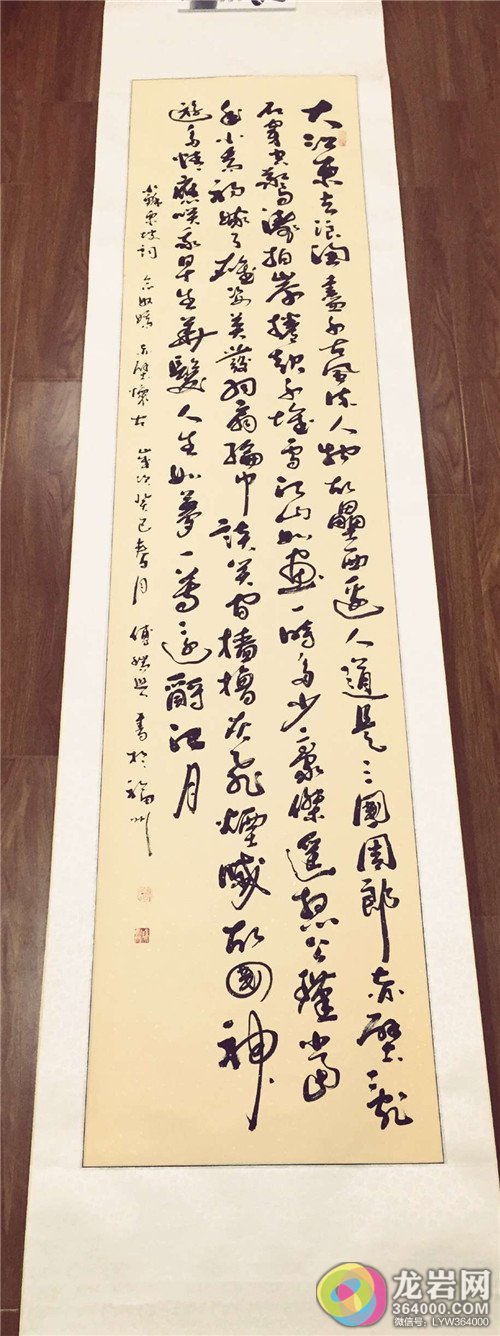 大江東去浪淘盡千古風流人物故壘西邊人道是三國周郎赤壁亂
石穿空驚濤拍岸捲起千堆雪江山如畫一時多少豪傑遙想公瑾當
年小喬初嫁了雄姿英發羽扇綸巾談笑間檣櫓灰飛煙滅故國神
遊多情應笑我早生華髮人生如夢一尊還酹江月
蘇東坡詞 念奴嬌 赤壁懷古 歲次癸巳 月 傅 書於福州
龙岩网
364000.com
微信号：LYW364000